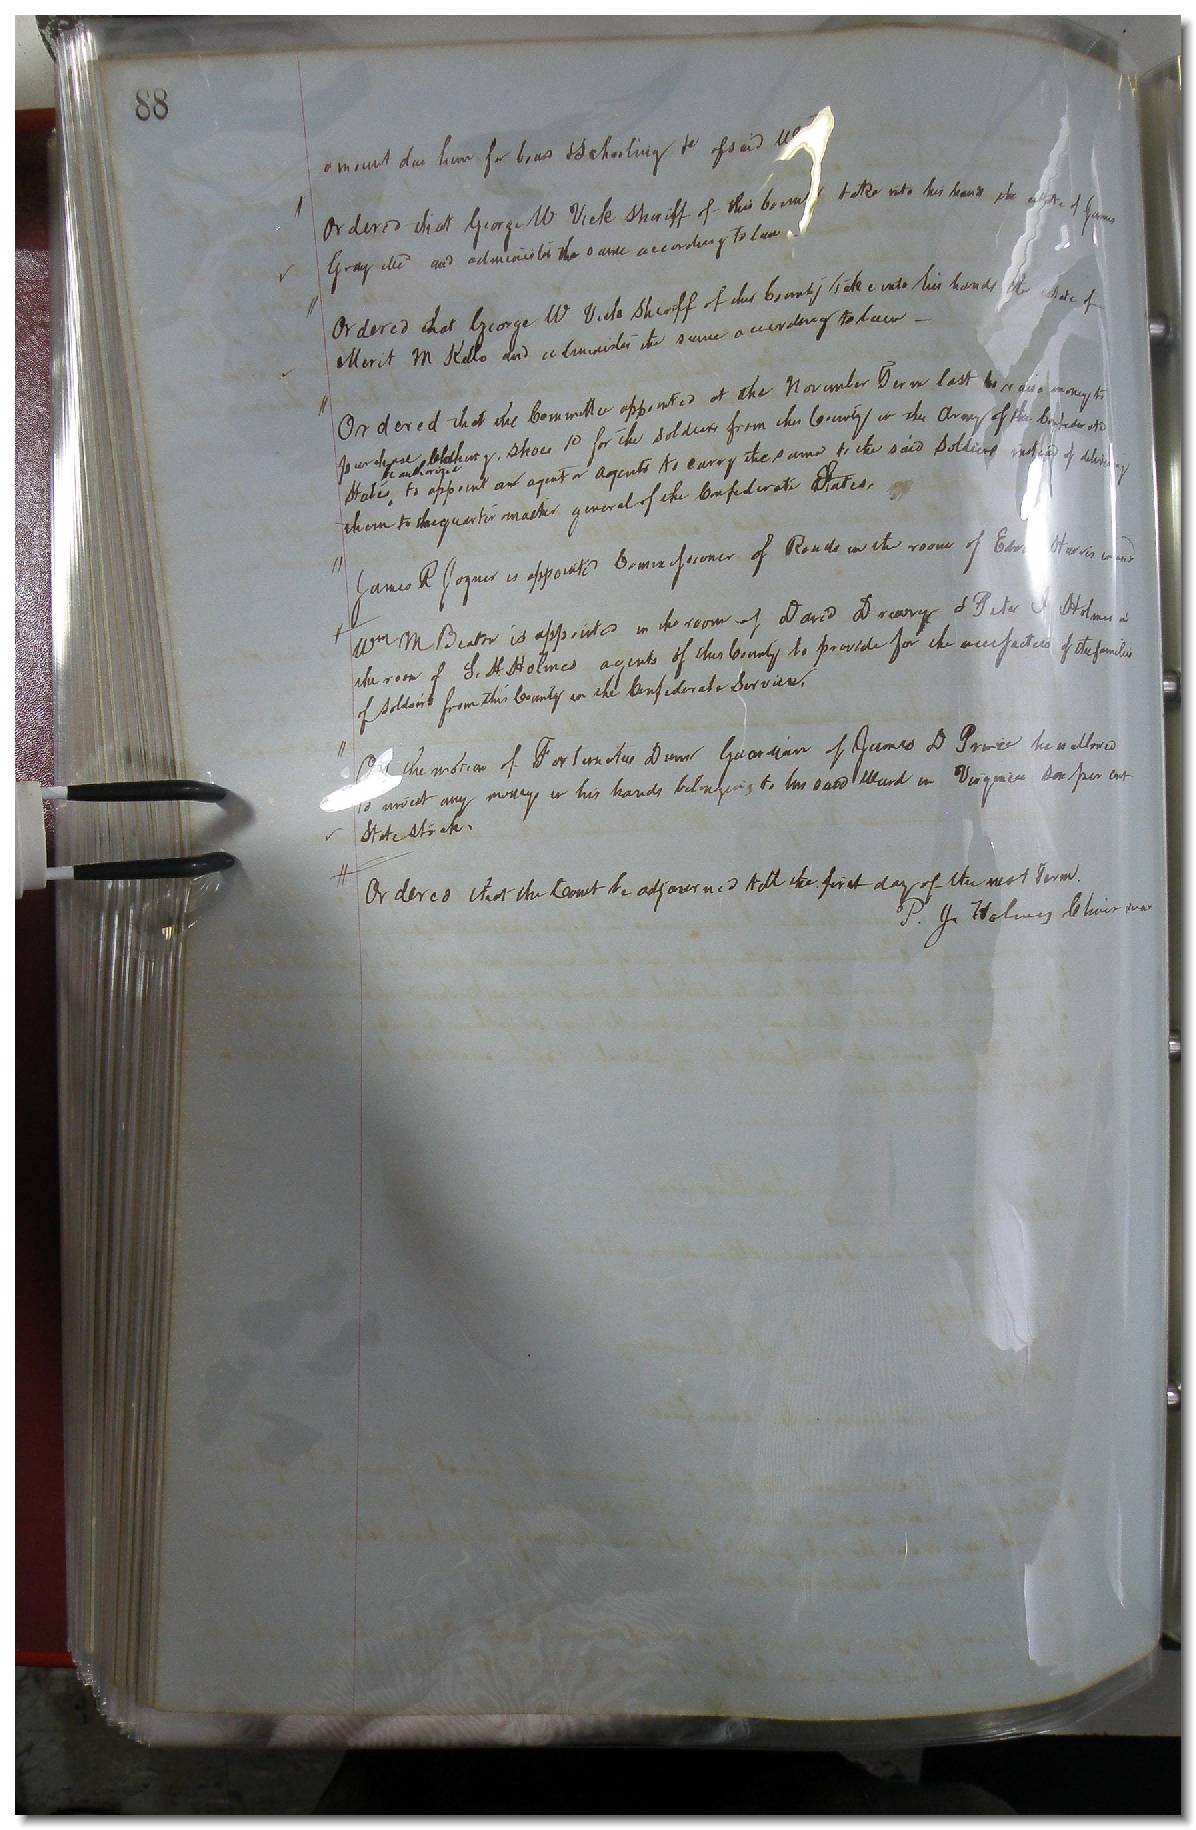 88
amount due him for board & Schooling &c of said
Ordered that George W Vick Sheriff of this County take into his hands the estate of James
Gray decd and administer the same according to law.
Ordered that George W Vick Sheriff of this County take into his hands the estate of
Merit M Kello and administer the same according to law —
Ordered that the Committee appointed at the November Term last to raise money to
purchase clothing, shoes &c for the soldiers from this County in the Army of the Confederate
be authorized
States, to appoint an agent or agents to carry the same to the said Soldiers instead of delivering
them to the quarter master general of the Confederate States.
James R Joyner is appointed Commissioner of Roads in the room of Harris
Wm M Beaton is appointed in the room of David Drewry & Peter J Holmes in
the room of S. H Holmes agents of this County to provide for the necessities of the families
of soldiers from this County in the Confederate Service.
On the motion of Fortunatus Dunn Guardian of James D Prince he is allowed
to invest any money in his hands belonging to his said Ward in Virginia Six per cent
State stock.
Ordered that the Court be adjourned till the first day of the next Term.
P. J. Holmes Chairman